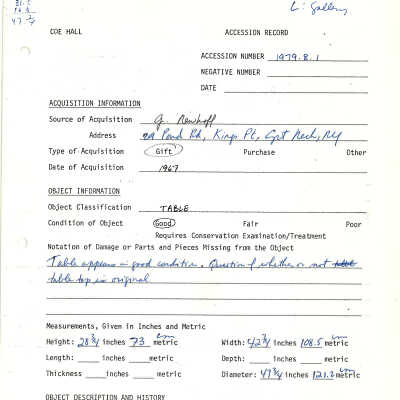 L: Gallery
47 3/4
COE HALL ACCESSION RECORD
ACCESSION NUMBER 1979.8.1
NEGATIVE NUMBER
DATE
ACQUISITION INFORMATION
Source of Acquisition G. Newhoff
Address Pond Rd, Kings Pt, Grt Neck, NY
Type of Acquisition Gift Purchase Other
Date of Acquisition 1967
OBJECT INFORMATION
Object Classification TABLE
Condition of Object Good Fair Poor
Requires Conservation Examination/Treatment
Notation of Damage or Parts and Pieces Missing from the Object
Table appears in good condition. Question of whether or not table
table top is original
Measurements, Given in Inches and Metric
Height: 28 3/4 inches 73 cm metric Width: 42 3/4 inches 108.5 cm metric
Length: inches metric Depth: inches metric
Thickness inches metric Diameter: 47 3/4 inches 121.2 cm metric
OBJECT DESCRIPTION AND HISTORY